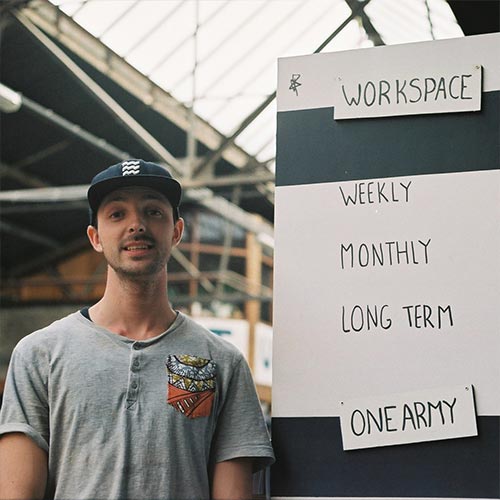 WORKSPACE
WEEKLY
MONTHLY
LONG TERM
ONE ARMY